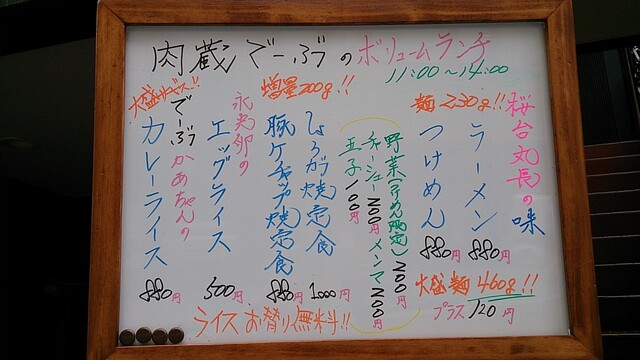 肉蔵でーぶのボリュームランチ
11:00〜14:00
桜台丸長の味
麺230g!!
ラーメン
880円
つけめん
880円
大盛麺460g!!
プラス120円
野菜(つけめん限定)200円
チャーシュー200円 メンマ200円
玉子100円
増量200g!!
しょうが焼定食
1000円
豚ケチャップ焼定食
880円
永光卵の
エッグライス
500円
大盛サービス!!
でーぶかあちゃんの
カレーライス
880円
ライスお替り無料!!